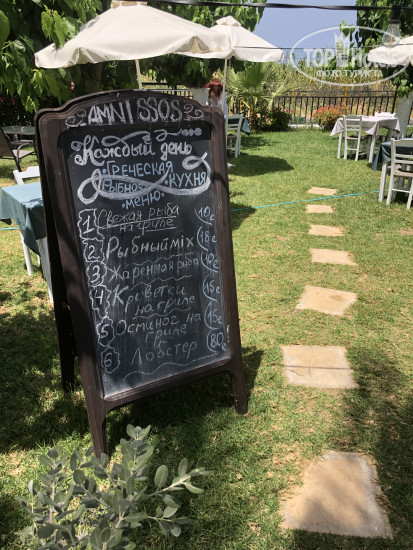 TopHotels
ФОТО ТУРИСТА
AMNISSOS
Каждый день
ГРЕЧЕСКАЯ
РЫБНОЕ КУХНЯ
МЕНЮ
1 Свежая рыба 10€
на гриле
2 Рыбный mix 18€
3 Жаренная рыба 10€
4 Креветки 15€
на гриле
5 Осминог на 15€
гриле
6 Лобстер 80